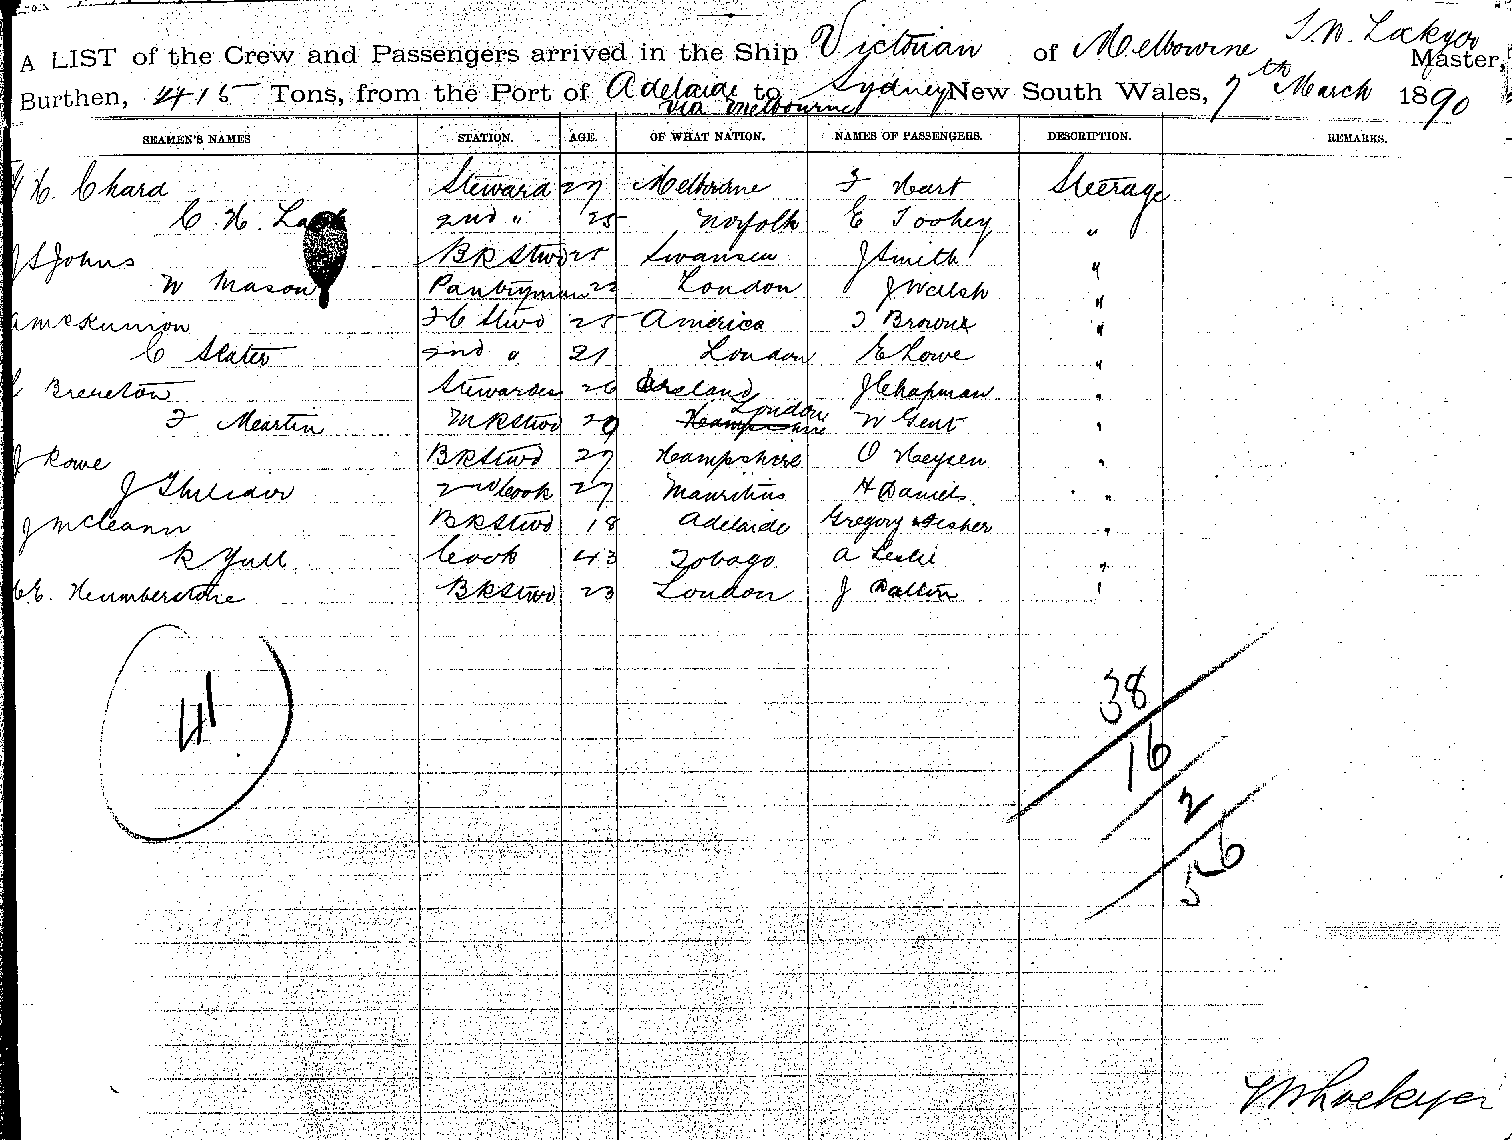 A LIST of the Crew and Passengers arrived in the Ship Victorian of Melbourne T. W. Lockyer Master,
Burthen, 415 Tons, from the Port of Adelaide to Sydney New South Wales, 7th March 1890
via Melbourne
SEAMEN'S NAMES STATION. AGE. OF WHAT NATION. NAMES OF PASSENGERS. DESCRIPTION. REMARKS.
H. Chard Steward 27 Melbourne F Hart Steerage
C H. 2nd " 25 Norfolk E Toohey "
J S Johns BRStwd 25 Swansea J Smith "
W Mason Pantryman 22 London J Walsh "
A McKunnion FC Stwd 25 America T Browne "
C Slater 2nd " 21 London E Lowe "
Brereton Stewardess 26 Ireland J Chapman "
F Martin MRStwd 29 London W Gent "
J Rowe BRStwd 27 Hampshire O Heysen "
J 2nd Cook 27 Mauritius H Daniels "
J McCleann BRStwd 18 Adelaide Gregory Fisher "
R Yull Cook 43 Tobago A Leslie "
C E. Humberstone BRStwd 23 London J Dalton "
41
38
16
2
56
T W Lockyer